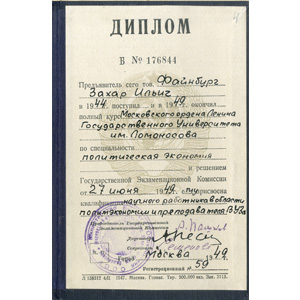 ДИПЛОМ
Б № 176844
Предъявитель сего тов. Файнбург
Захар Ильич
в 1944 поступил в 1949 окончил
полный курс Московского ордена Ленина
Государственного Университета
им. Ломоносова
по специальности
политическая экономия
и решением
Государственной Экзаменационной Комиссии
от 27 июня 1949 г. ему присвоена
квалификация научного работника в области
политэкономии и преподавателя
Председатель Государственной
Экзаменационной Комиссии
Секретарь
Москва 1949
Регистрационный № 59